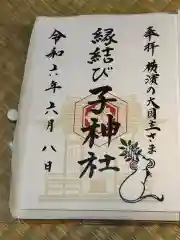 奉拝 横濱の大国主さま
縁結び
子神社
令和六年六月八日